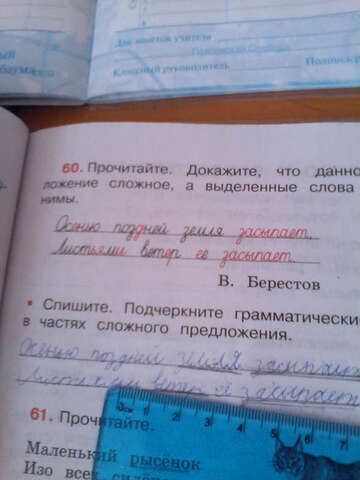 Для заметок учителя
Классный руководитель
60. Прочитайте. Докажите, что данно
ложение сложное, а выделенные слова
нимы.
Осенью поздней земля засыпает.
Листьями ветер её засыпает.
В. Берестов
• Спишите. Подчеркните грамматические
в частях сложного предложения.
Осенью поздней земля
ветер
61. Прочитайте.
1 2 3 4 5 6 7
Маленький рысёнок
Изо всех